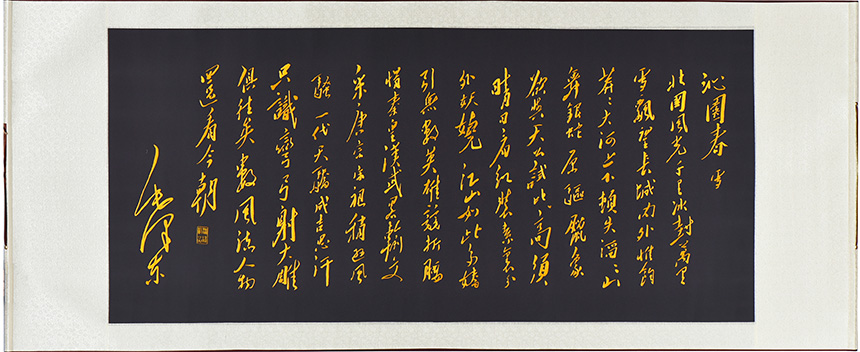 沁園春 雪
北國風光千里冰封萬里
雪飄望長城内外惟餘
莽々大河上下頓失滔々山
舞銀蛇原驅臘象
欲與天公試比高須
晴日看紅裝素裹分
外妖嬈江山如此多嬌
引無數英雄競折腰
惜秦皇漢武略輸文
采唐宗宋祖稍遜風
騷一代天驕成吉思汗
只識彎弓射大雕
俱往矣數風流人物
還看今朝
毛澤東